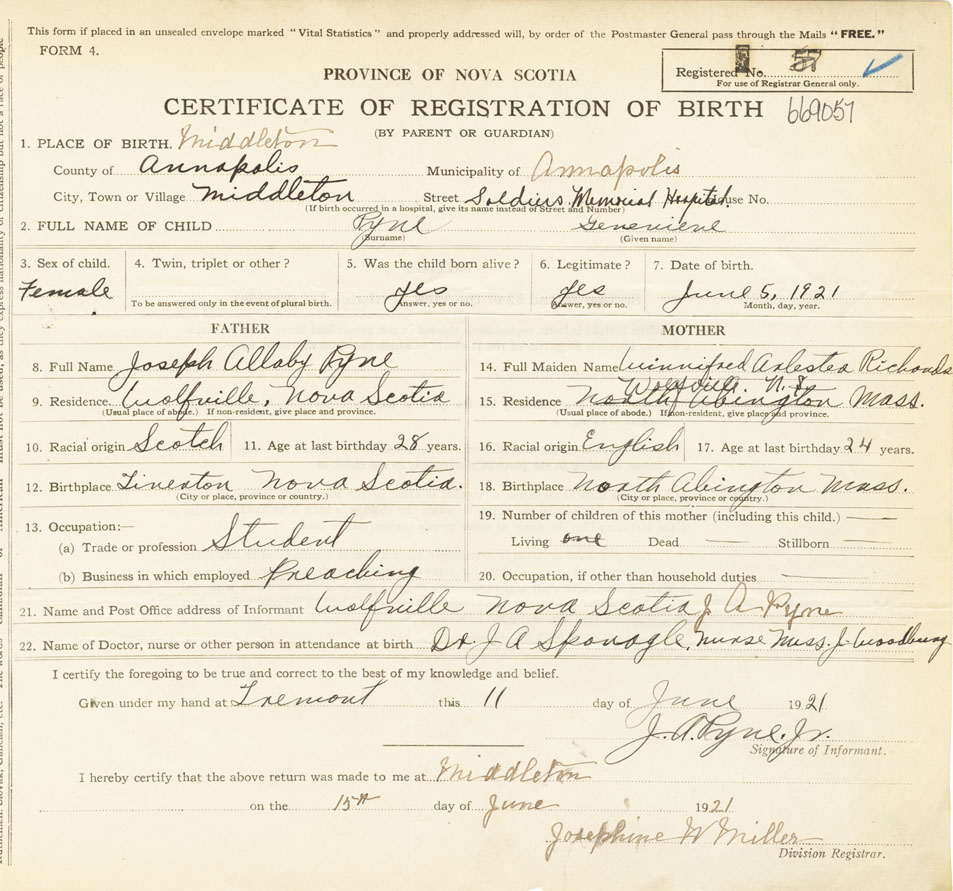 This form if placed in an unsealed envelope marked "Vital Statistics" and properly addressed will, by order of the Postmaster General pass through the Mails "FREE."
FORM 4.
Registered No.
For use of Registrar General only.
PROVINCE OF NOVA SCOTIA
CERTIFICATE OF REGISTRATION OF BIRTH 669057
(BY PARENT OR GUARDIAN)
1. PLACE OF BIRTH. Middleton
County of Annapolis Municipality of Annapolis
City, Town or Village Middleton Street Soldiers Memorial Hospital House No.
(If birth occurred in a hospital, give its name instead of Street and Number)
2. FULL NAME OF CHILD Pyne Genevieve
(Surname) (Given name)
3. Sex of child. 4. Twin, triplet or other? 5. Was the child born alive? 6. Legitimate? 7. Date of birth.
Female yes yes June 5, 1921
To be answered only in the event of plural birth. Answer, yes or no. Answer, yes or no. Month, day, year.
FATHER MOTHER
8. Full Name Joseph Allaby Pyne 14. Full Maiden Name Winnifred Arlestea Richards
Wolfville. N.S.
9. Residence Wolfville, Nova Scotia 15. Residence North Abington Mass.
(Usual place of abode.) If non-resident, give place and province. (Usual place of abode.) If non-resident, give place and province.
10. Racial origin Scotch 11. Age at last birthday 28 years. 16. Racial origin English 17. Age at last birthday 24 years.
12. Birthplace Tiverton Nova Scotia. 18. Birthplace North Abington Mass.
(City or place, province or country.) (City or place, province or country.)
13. Occupation:— 19. Number of children of this mother (including this child.)
(a) Trade or profession Student Living one Dead — Stillborn —
(b) Business in which employed Preaching 20. Occupation, if other than household duties
21. Name and Post Office address of Informant Wolfville Nova Scotia J A Pyne
22. Name of Doctor, nurse or other person in attendance at birth Dr. J A Sponagle, Nurse Miss. J. Woodbury
I certify the foregoing to be true and correct to the best of my knowledge and belief.
Given under my hand at Tremont this 11 day of June 1921
J. A. Pyne, Jr.
Signature of Informant.
I hereby certify that the above return was made to me at Middleton
on the 15th day of June 1921
Josephine W Miller
Division Registrar.